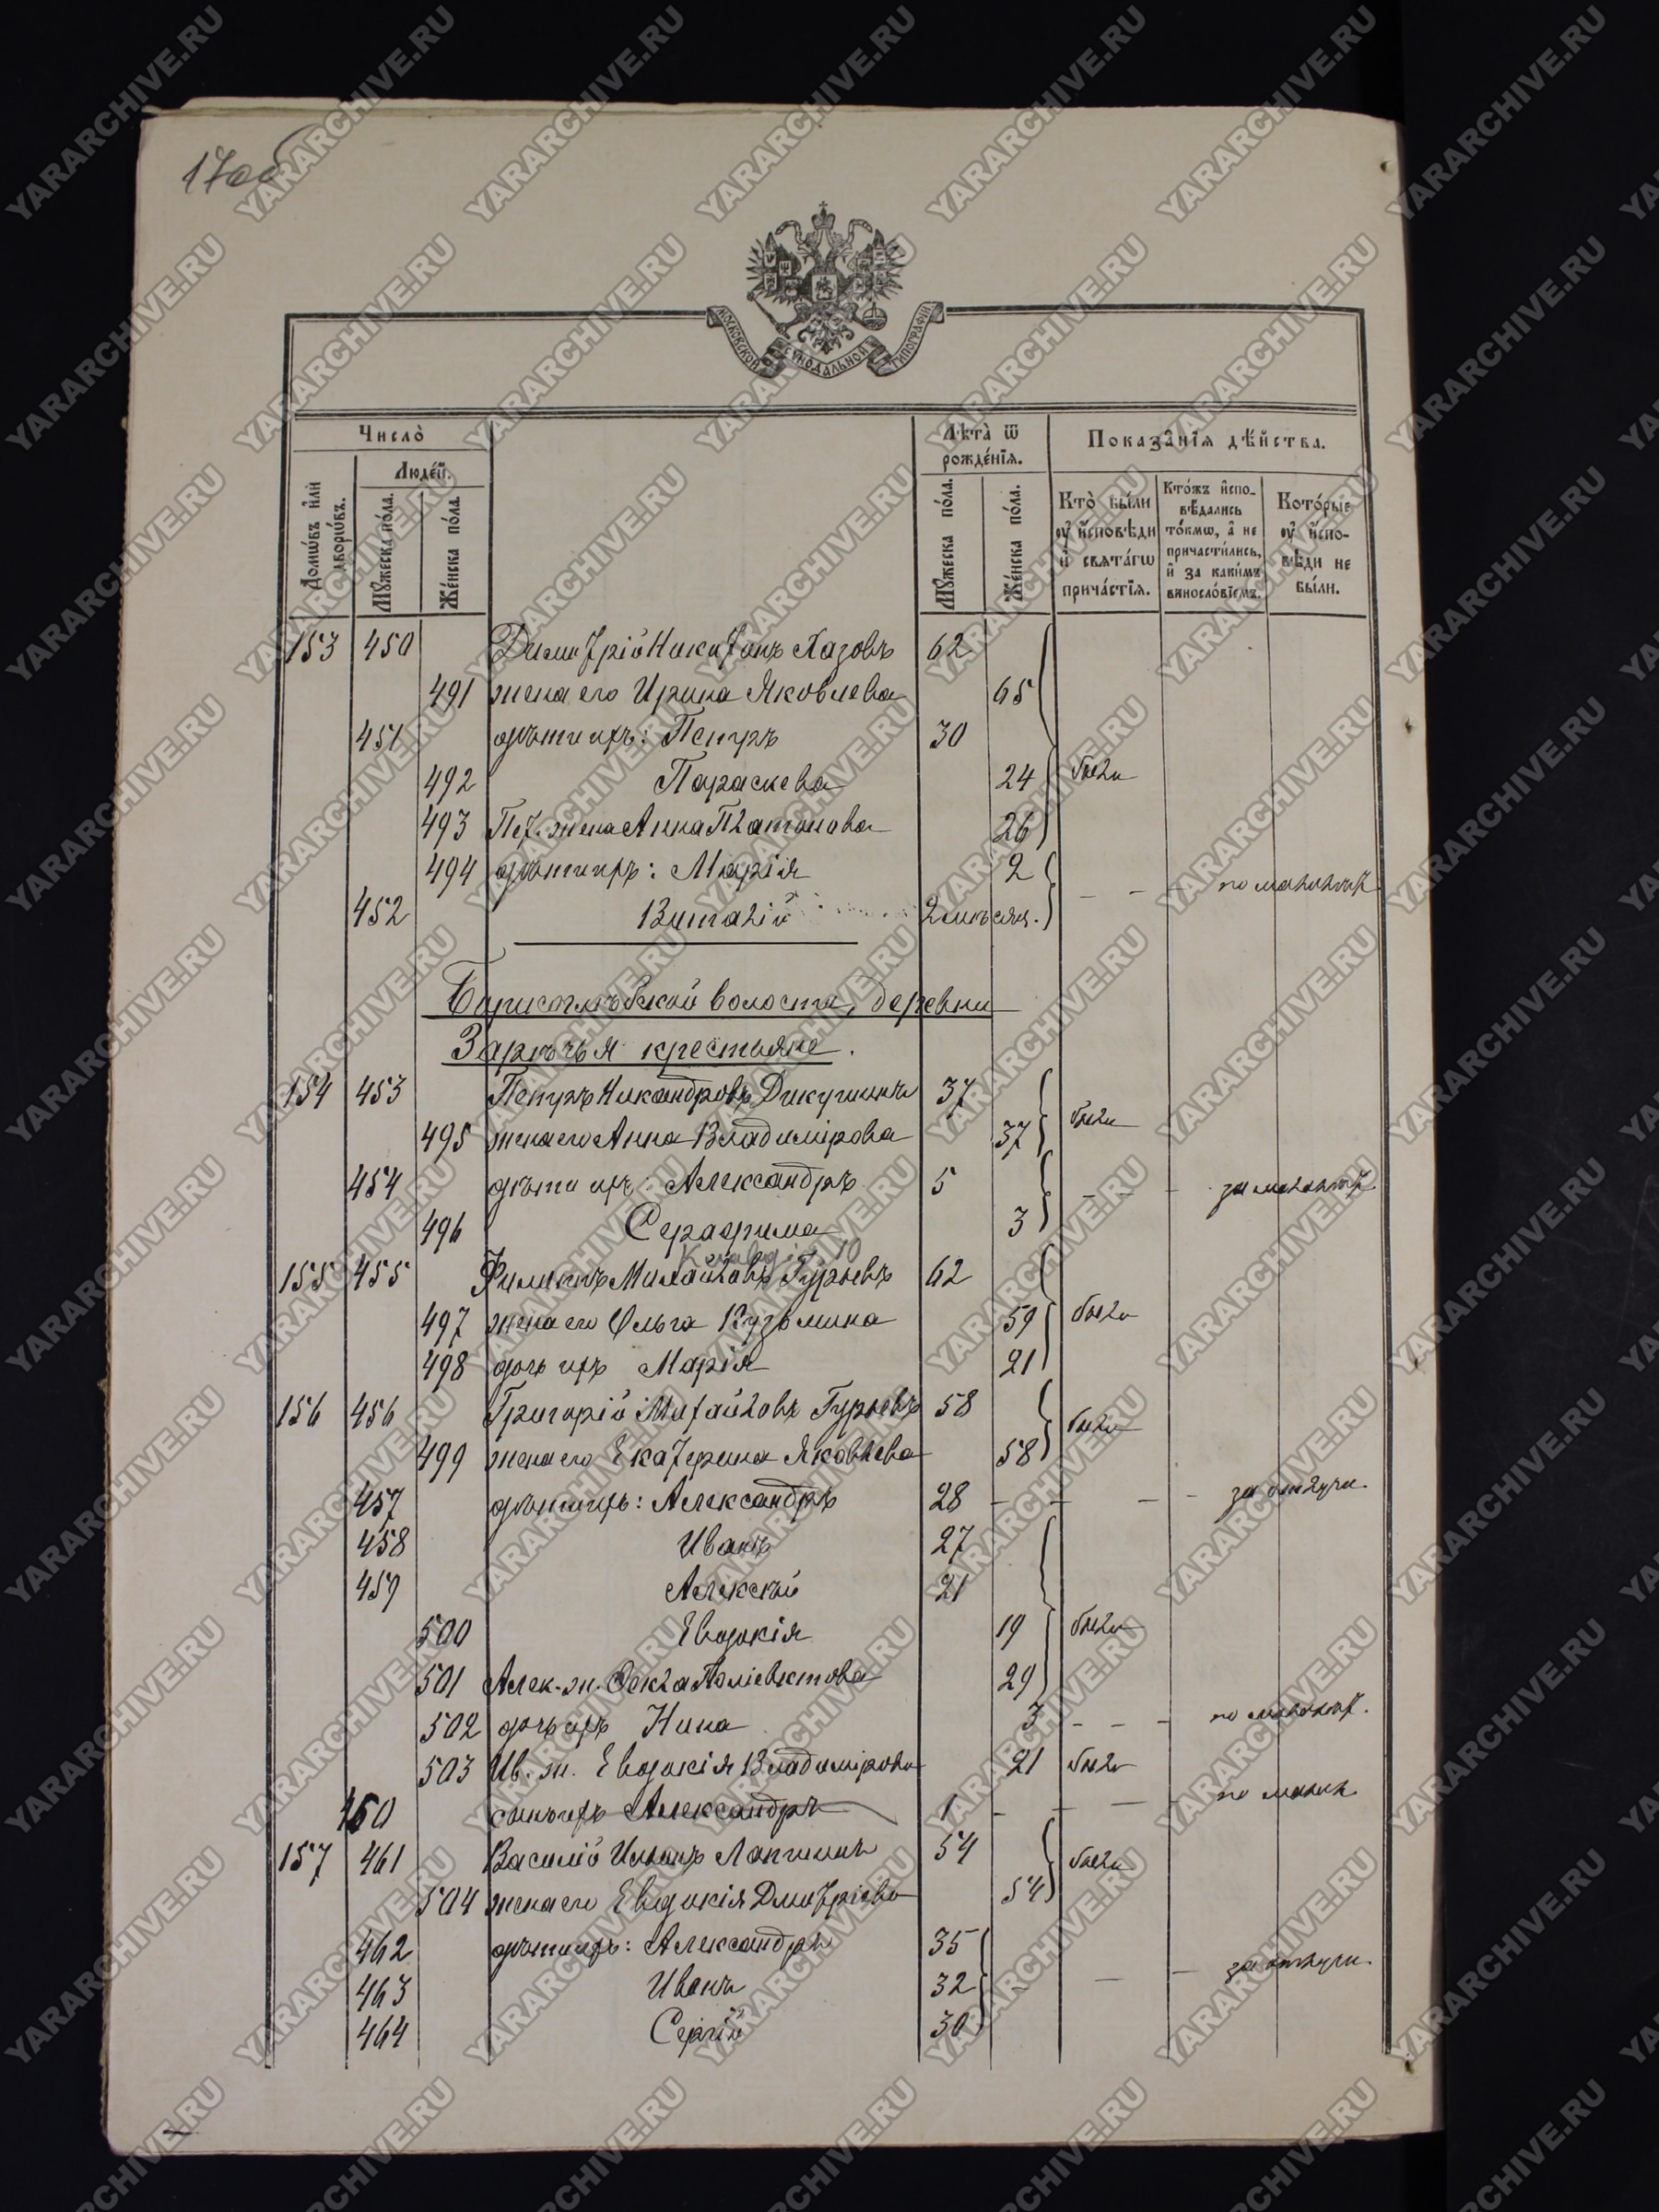 17об
МОСКОВСКОЙ СѴНОДАЛЬНОЙ ТИПОГРАФІИ.
Число̀
Людéй.
Домѡвъ и҆лѝ дворѡвъ.
Мꙋжеска пóла.
Жéнска пóла.
Лѣта̀ ѿ рождéнїя.
Мꙋжеска пóла.
Жéнска пóла.
Показáнїя дѣ́йства.
Кто̀ бы́ли ᲂу҆ и҆сповѣди и҆ свѧтáгѡ причáстїя.
Ктóжъ и҆сповѣдались тóкмѡ, а҆ не причастѝлись, и҆ за каки́мъ винослóвїемъ.
Котóрые ᲂу҆ и҆сповѣди не бы́ли.
153 450 Димитрій Никитинъ Хазовъ 62
491 жена его Ирина Яковлева 65
451 дѣти ихъ: Петръ 30
492 Параскева 24 были
493 Пет. жена Анна Платонова 26
494 дѣти ихъ: Марія 2
452 Виталій 2 мѣсяц. по малолѣт.
Борисоглѣбской волости, деревни
Зарѣчья крестьяне.
154 453 Петръ Никандровъ Дикушинъ 37
495 жена его Анна Владимірова 37 были
454 дѣти ихъ: Александръ 5 за малолѣт.
496 Серафима 3
155 455 Филиппъ Михайловъ Гурьевъ 62
497 жена его Ольга Кузьмина 59 были
498 дочь ихъ Марія 21
156 456 Григорій Михайловъ Гурьевъ 58
499 жена его Екатерина Яковлева 58 были
457 дѣти ихъ: Александръ 28 за отлуч.
458 Иванъ 27
459 Алексѣй 21
500 Евдокія 19 были
501 Алек. ж. Ѳекла Поліевктова 29
502 дочь ихъ Нина 3 по малолѣт.
503 Ив. ж. Евдокія Владимірова 21 были
460 сынъ ихъ Александръ 1 по малол.
157 461 Василій Ильинъ Лапшинъ 54 были
504 жена его Евдокія Дмитріева 54
462 дѣти ихъ: Александръ 35
463 Иванъ 32 за отлуч.
464 Сергій 30
YARARCHIVE.RU